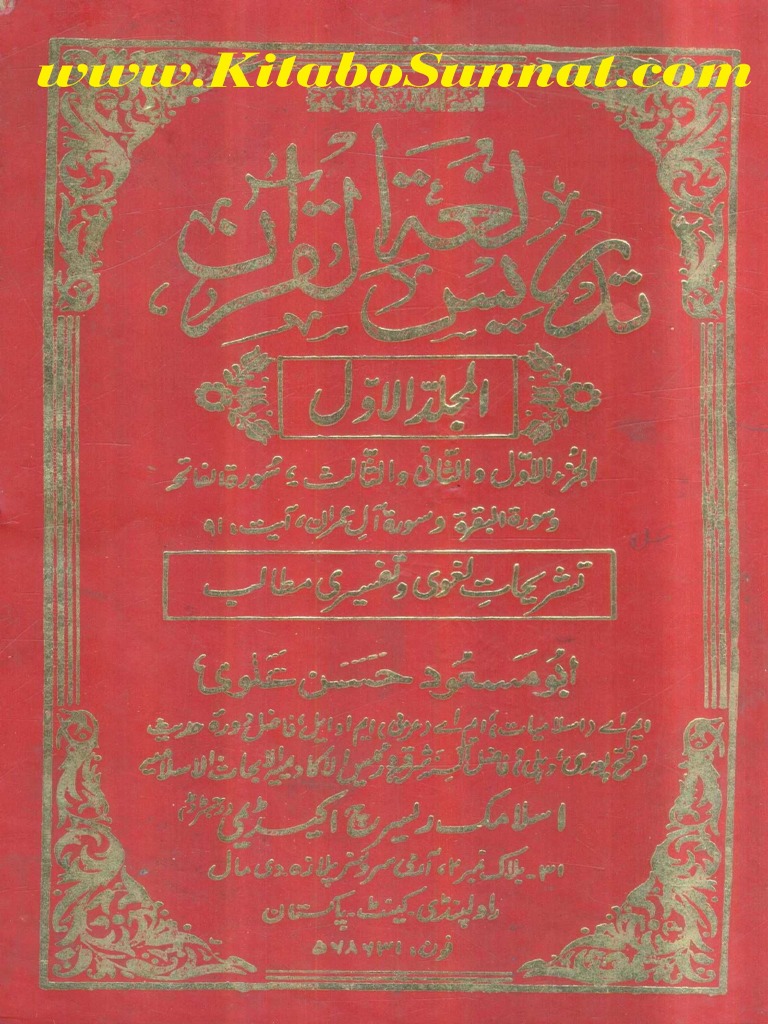 www.KitaboSunnat.com
تدریس لغة القرآن
المجلد الاوّل
الجزء الاوّل والثانی والثالث، سورۃ الفاتحہ
وسورۃ البقرۃ وسورۃ آل عمران، آیت، ۹۱
تشریحاتِ لغوی و تفسیری مطالب
ابو مسعود حسن علوی
ایم اے (اسلامیات) ایم اے (عربی) ایم او ایل، فاضل دورۃ حدیث
(فتح پوری، دہلی) فاضل السنہ شرقیہ
اسلامک ریسرچ اکیڈمی (رجسٹرڈ)
۳۱۔ بلاک نمبر ۲، آرمی سروسز پلازہ دی مال
راولپنڈی۔ کینٹ۔ پاکستان
فون: ۵۶۸۷۳۱